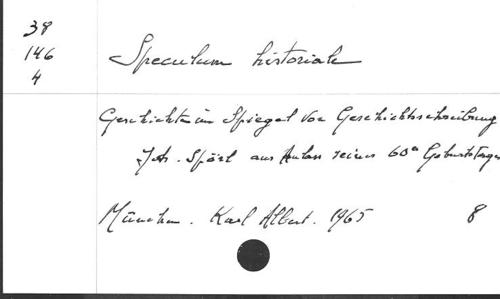 38
146
4
Speculum historiale
Geschichte im Spiegel von Geschichtsschreibung
Joh. Spörl aus Anlass seines 60n Geburtstages
München. Karl Alber. 1965 8